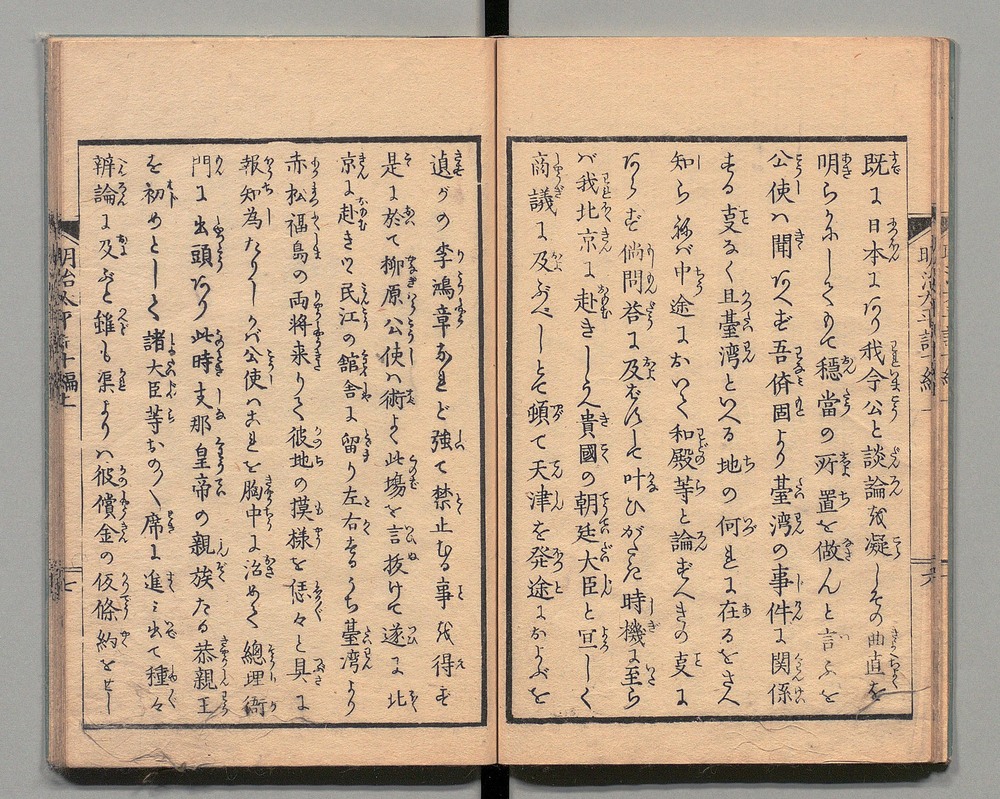 既に日本にあり我今公と談論を凝しその曲直を
明らかにしてもて穏當の所置を做んと言ふを
公使ハ聞あへず吾儕固より臺湾の事件に関係
する支なく且臺湾といへる地の何れに在るをさへ
知らねバ中途において和殿等と論ずべきの支に
あらず倘問荅に及ばずして叶ひがたき時機に至ら
バ我北京に赴きしうへ貴國の朝廷大臣と亘しく
商議に及ぶべしとて頓て天津を発途におよぶを
遉がの李鴻章なれど強て禁止むる事を得ず
是に於て柳原公使ハ術よく此塲を言抜けて遂に北
京に赴きつ民江の舘舎に留り左右するうち臺湾より
赤松福島の両将来りて彼地の摸様を偆々と具に
報知為たりしかバ公使ハこれを胸中に治めて總理衙
門に出頭あり此時支那皇帝の親族たる恭親王
を初めとして諸大臣等おの〱席に進ミ出て種々
辨論に及ぶと雖も渠よりハ彼償金の仮條約をせし
明治太平記十編上
七
六